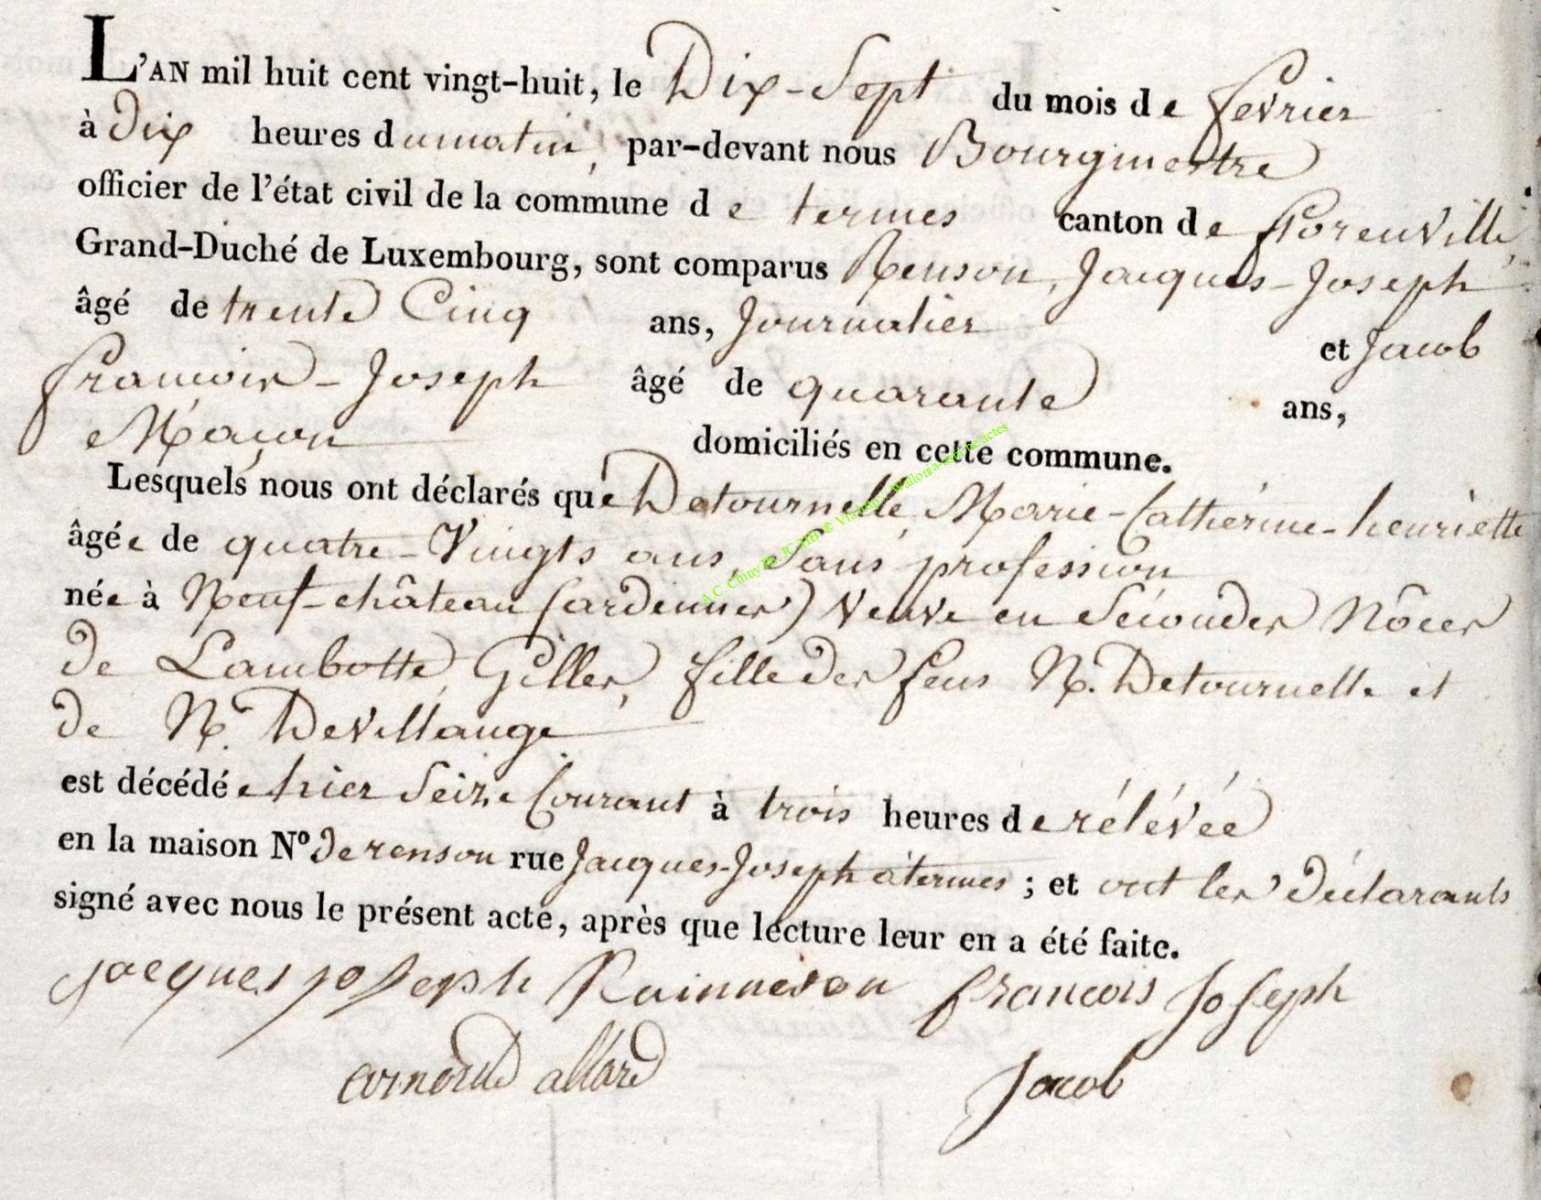 L'AN mil huit cent vingt-huit, le Dix-Sept du mois de fevrier
à dix heures du matin, par-devant nous Bourgmestre
officier de l'état civil de la commune de termes canton de florenville
Grand-Duché de Luxembourg, sont comparus Renson, Jacques-Joseph
âgé de trente Cinq ans, Journalier et Jacob
francois-Joseph âgé de quarante ans,
Maçon domiciliés en cette commune.
Lesquels nous ont déclarés que Detournelle, Marie-Cathérine-henriette
âgée de quatre-Vingts ans, Sans profession
née à Neuf-château (ardennes) Veuve en Secondes Nôces
de Lambotte, Gilles, fille des feus N. Detournelle et
de N. Devillange
est décédée hier Seize Courant à trois heures de rélévée
en la maison N° de renson rue Jacques-Joseph à termes ; et ont les déclarants
signé avec nous le présent acte, après que lecture leur en a été faite.
jacques joseph Rainneson francois Joseph
arnould allard Jacob